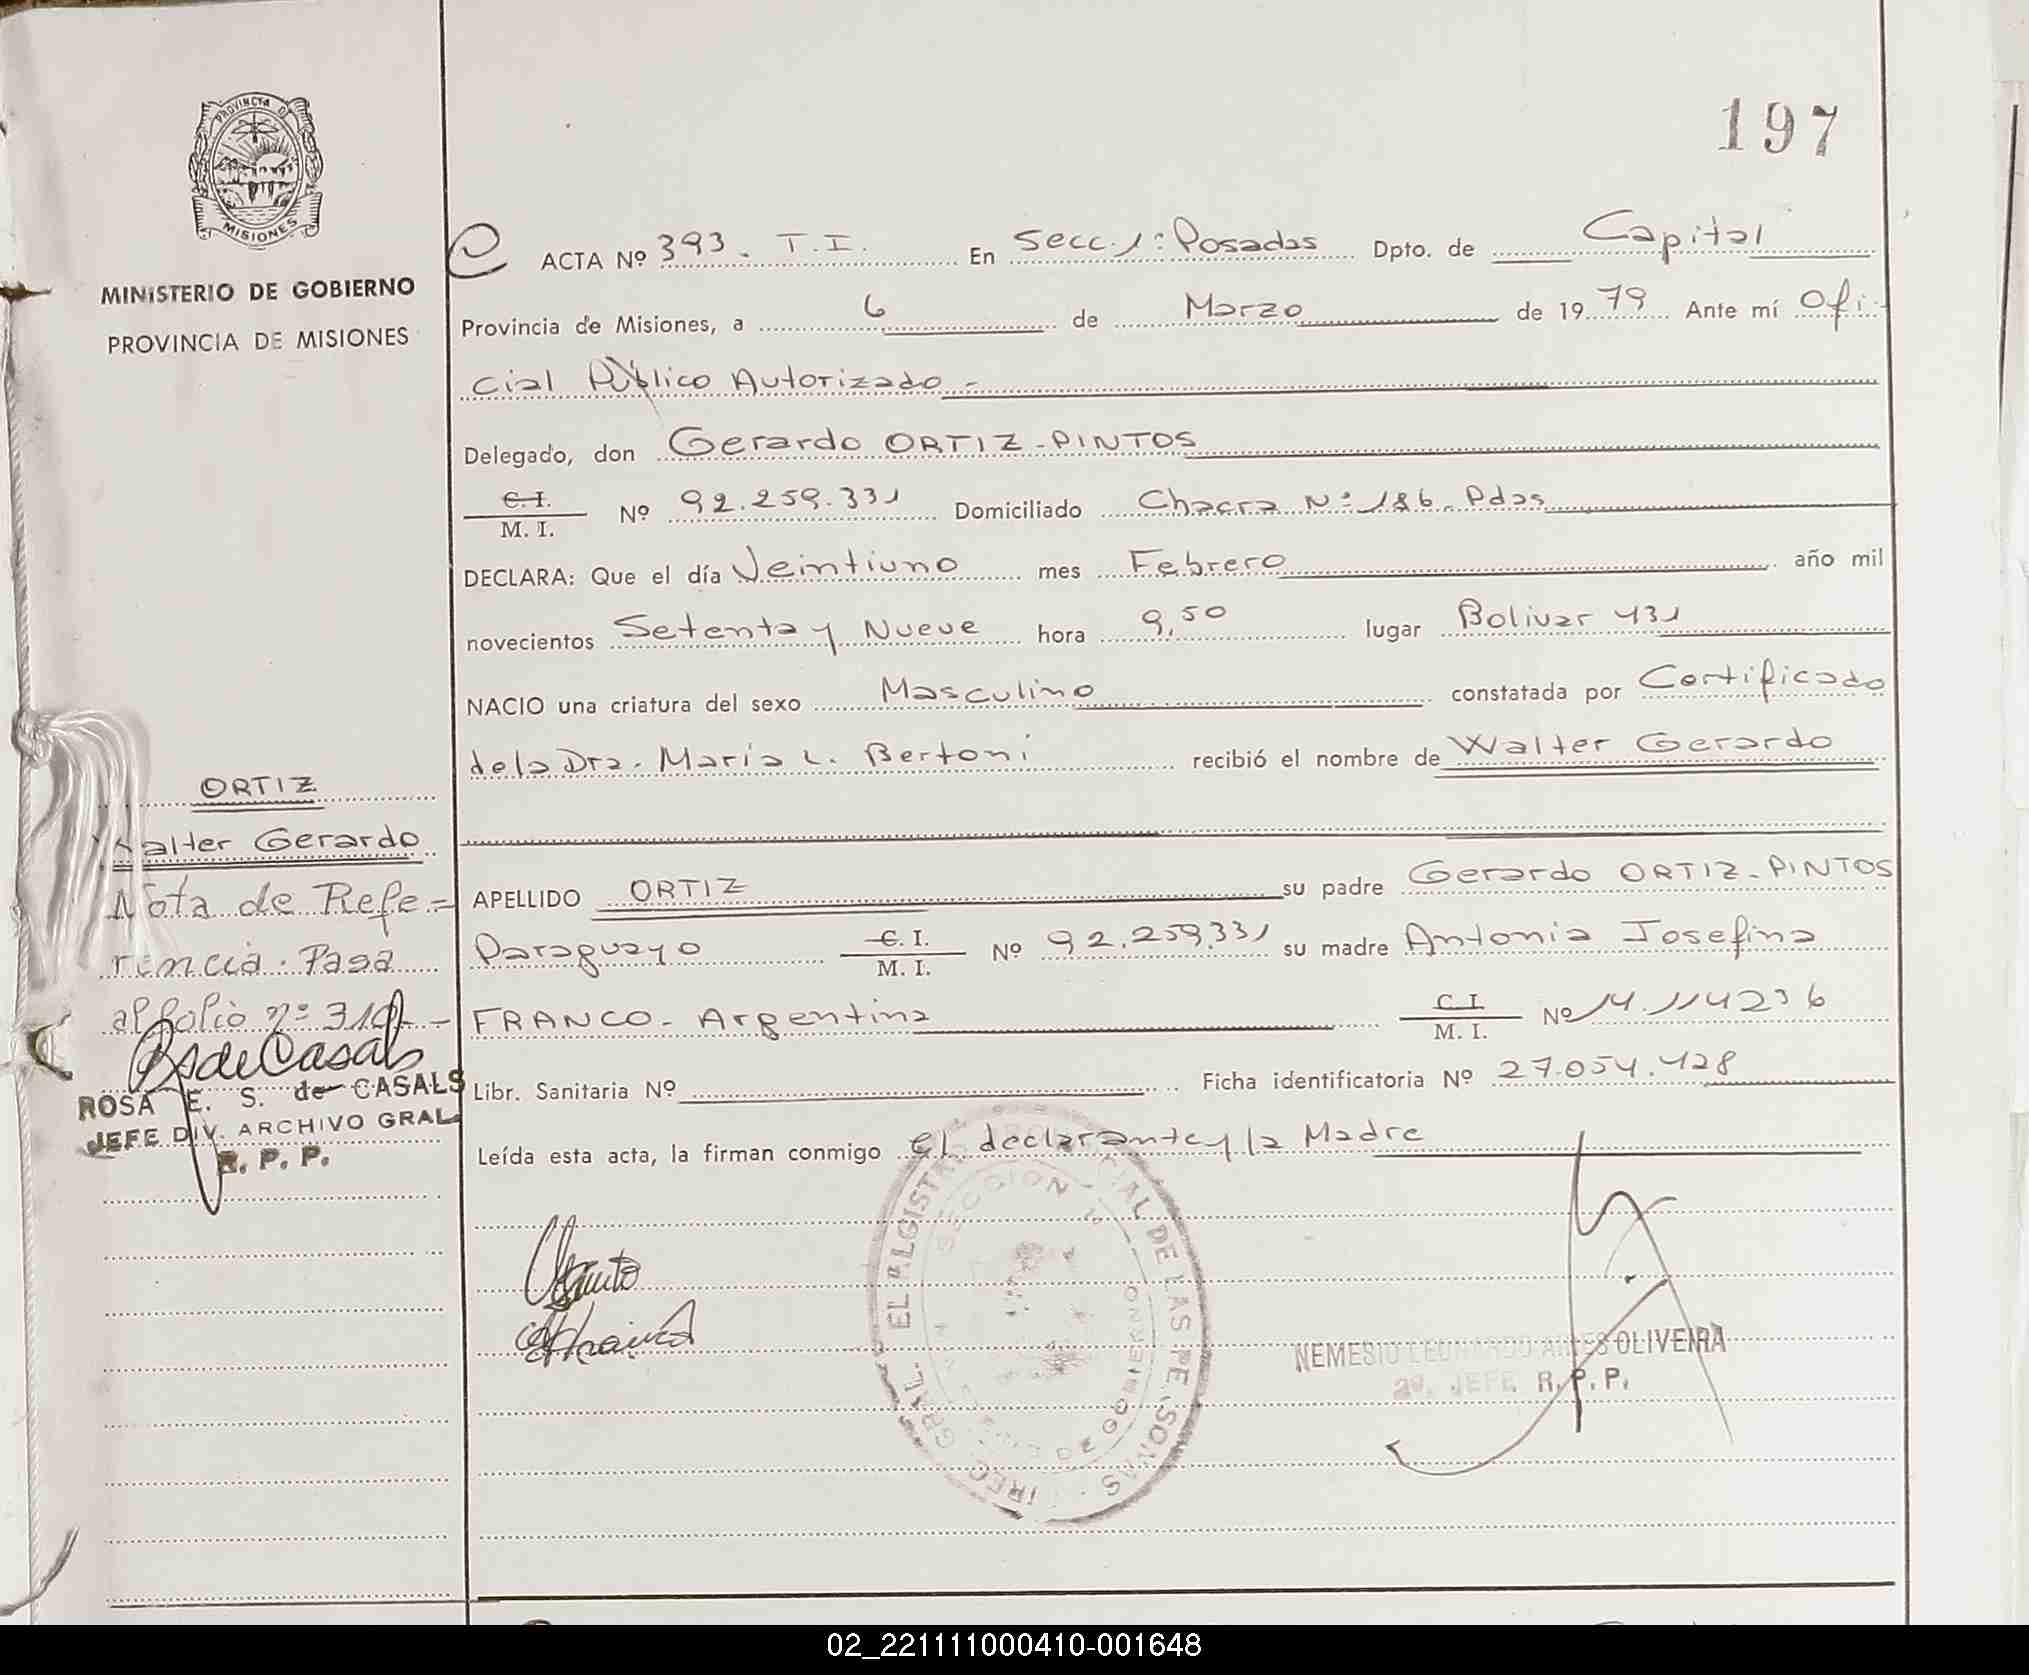 197
PROVINCIA DE
MISIONES
MINISTERIO DE GOBIERNO
PROVINCIA DE MISIONES
ACTA Nº 393. T.I. En Secc. 1ª Posadas Dpto. de Capital
Provincia de Misiones, a 6 de Marzo de 1979 Ante mí Ofi-
cial Público Autorizado -
Delegado, don Gerardo ORTIZ-PINTOS
C. I. M. I. Nº 92.259.331 Domiciliado Chacra Nº 186. Pdas
DECLARA: Que el día Veintiuno mes Febrero año mil
novecientos Setenta y Nueve hora 9,50 lugar Bolivar 431
NACIO una criatura del sexo Masculino constatada por Certificado
de la Dra. Maria L. Bertoni recibió el nombre de Walter Gerardo
APELLIDO ORTIZ su padre Gerardo ORTIZ-PINTOS
Paraguayo C. I. M. I. Nº 92.259.331 su madre Antonia Josefina
FRANCO - Argentina C. I. M. I. Nº 14.114236
Libr. Sanitaria Nº Ficha identificatoria Nº 27.054.428
Leída esta acta, la firman conmigo el declarante y la Madre
ORTIZ
Walter Gerardo
Nota de Refe=
rencia. Pasa
al folio nº 310 -
RSdeCasals
ROSA E. S. de CASALS
JEFE DIV. ARCHIVO GRAL.
R. P. P.
SECCION
GOBIERNO
NEMESIO LEONARDO OLIVEIRA
2º. JEFE R. P. P.
02_221111000410-001648